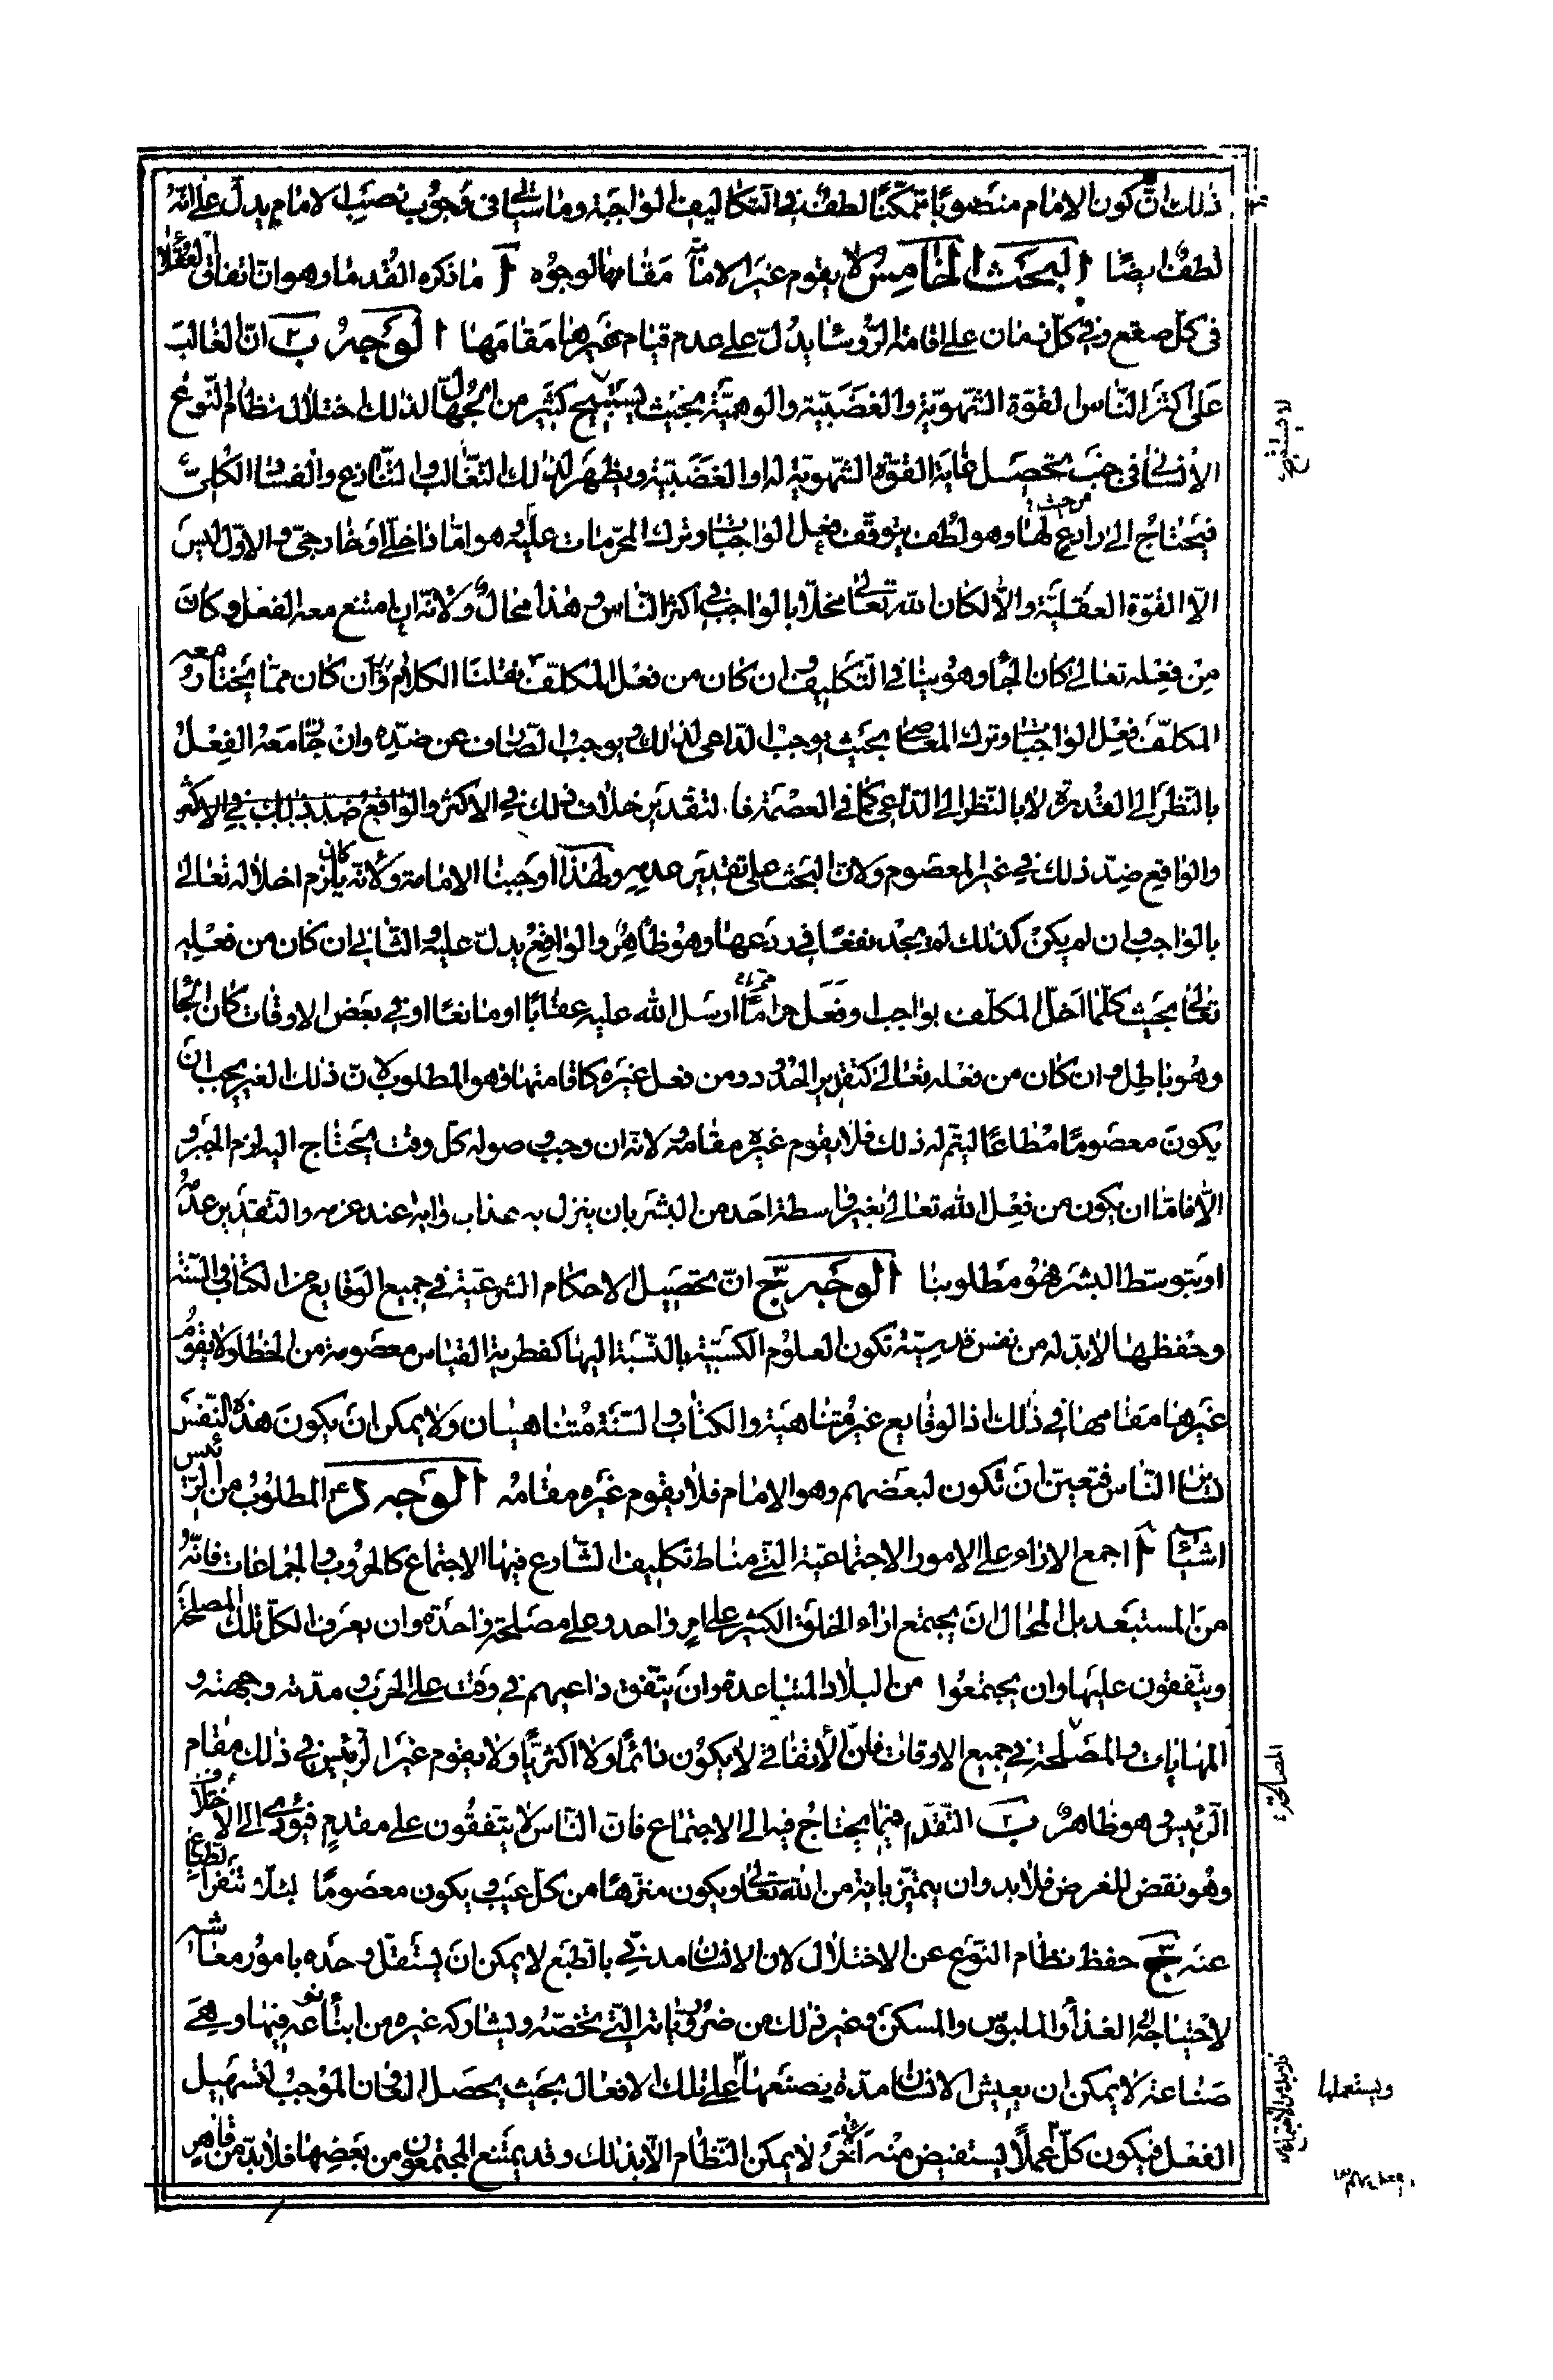 ذلك انّ كون الامام منصوبا متمكّنا لطف فى التكاليف الواجبة وما سيأتى فى وجوب نصب الامام يدلّ على انّه
لطف ايضا البحث الخامس لا يقوم غير الامامة مقامها لوجوه آ ما ذكره القدماء وهو انّ اتفاق العقلاء
فى كلّ صقع وفى كلّ زمان على اقامة الرؤساء يدلّ على عدم قيام غيرها مقامها الوجه ب انّ الغالب
على اكثر النّاس القوّة الشهويّة والغضبيّة والوهميّة بحيث يستبيح كثير من الجهّال لذلك اختلال نظام النّوع
الانسانى فى جنب تحصيل غاية القوّة الشّهويّة له او الغضبيّة ويظهر لذلك التغالب والتنازع والفساد الكلىّ
فيحتاج الى رادع لها وهو لطف يتوقّف فعل الواجبات وترك المحرّمات عليه هو امّا داخلىّ او خارجىّ والاوّل ليس
الّا القوّة العقليّة والّا لكان الله تعالى مخلّا بالواجب فى اكثر النّاس وهذا محال ولانّه ان امتنع معه الفعل وكان
من فعله تعالى كان الجاء وهو ينافى التكليف وان كان من فعل المكلّف نقلنا الكلام اليه وان كان ممّا يختار معه
المكلّف فعل الواجبات وترك المعاصى بحيث يوجب الدّاعى لذلك ويوجب الصّارف عن ضدّه وان جامعه الفعل
بالنّظر الى القدرة لا بالنّظر الى الدّاعى كما فى العصمة فا لتقدير خلاف ذلك فى الاكثر والواقع ضدّ ذلك فى الاكثر
والواقع ضدّ ذلك فى غير المعصوم ولانّ البحث على تقدير عدمه ولهذا اوجبنا الامامة ولانّه كان يلزم اخلاله تعالى
بالواجب وان لم يكن كذلك لم يجد نفعا فى ردعها وهو ظاهر والواقع يدلّ عليه والثّانى ان كان من فعله
تعالى بحيث كلّما اخلّ المكلّف بواجب او فعل حراما ارسل الله عليه عقابا او مانعا او فى بعض الاوقات كان الجاء
وهو باطل وان كان من فعله تعالى كتقرير الحدود ومن فعل غيره كاقامتها فهو المطلوب لانّ ذلك الغير يجب ان
يكون معصوما مطاعا ليتمّ له ذلك فلا يقوم غيره مقامه لانّه ان وجب وصوله كل وقت يحتاج اليه لزم الجبر و
الّا فامّا ان يكون من فعل الله تعالى بغير واسطة احد من البشر بان ينزل به عذاب وآية عند عزمه والتقدير عدمه
او بتوسط البشر فهو مطلوبنا الوجه ج انّ تحصيل الاحكام الشرعيّة فى جميع الوقايع من الكتاب والسّنّة
وحفظها لا بدّ له من نفس قدسيّة تكون العلوم الكسبيّة بالنّسبة اليها كفطريّة القياس معصومة من الخطأ ولا يقوم
غيرها مقامها فى ذلك اذ الوقايع غير متناهية والكتاب والسّنّة متناهيان ولا يمكن ان يكون هذه النّفس
لسائر النّاس فتعيّن ان تكون لبعضهم وهو الامام فلا يقوم غيره مقامه الوجه د المطلوب من الرّئيس
اشياء آ اجمع الاراء على الامور الاجتماعيّة التى مناط تكليف الشّارع فيها الاجتماع كالحروب والجماعات فانّه
من المستبعد بل المحال ان يجتمع اراء الخلق الكثير على امر واحد وعلى مصلحة واحدة وان يعرف الكلّ تلك المصلحة
ويتّفقون عليها وان يجتمعوا من البلاد المتباعدة وان يتّفق دواعيهم فى وقت على الحرب ومدّته وجهته و
المهايات والمصلحة فى جميع الاوقات فانّ الاتّفاقى لا يكون دائما ولا اكثريّا ولا يقوم غير الرّئيس فى ذلك مقام
الرّئيس وهو ظاهر ب التقدّم فيما يحتاج فيه الى الاجتماع فانّ النّاس لا يتّفقون على مقدم فيؤدّى الى الاختلاف
وهو نقض للغرض فلا بد وان يتميّز باية من الله تعالى ويكون منزّها من كلّ عيب ويكون معصوما لئلّا تنفر الطّباع
عنه ج حفظ نظام النّوع عن الاختلال لان الانسان مدنىّ بالطّبع لا يمكن ان يستقلّ وحده بامور معاشه
لاحتياجه الى الغذاء والملبوس والمسكن وغير ذلك من ضروريّاته التى تخصّه ويشاركه غيره من ابناء نوعه فيها وهى
صناعة لا يمكن ان يعيش الانسان مدة يصنعها على تلك الافعال بحيث يحصل المعاون الموجب لتسهيل
الفعل فيكون كلّ عملا يستفيض منه آخر لا يمكن النّظام الّا بذلك وقد يمتنع المجتمعون من بعضها فلا بدّ من قاهر
المصالحة
ويستعملها